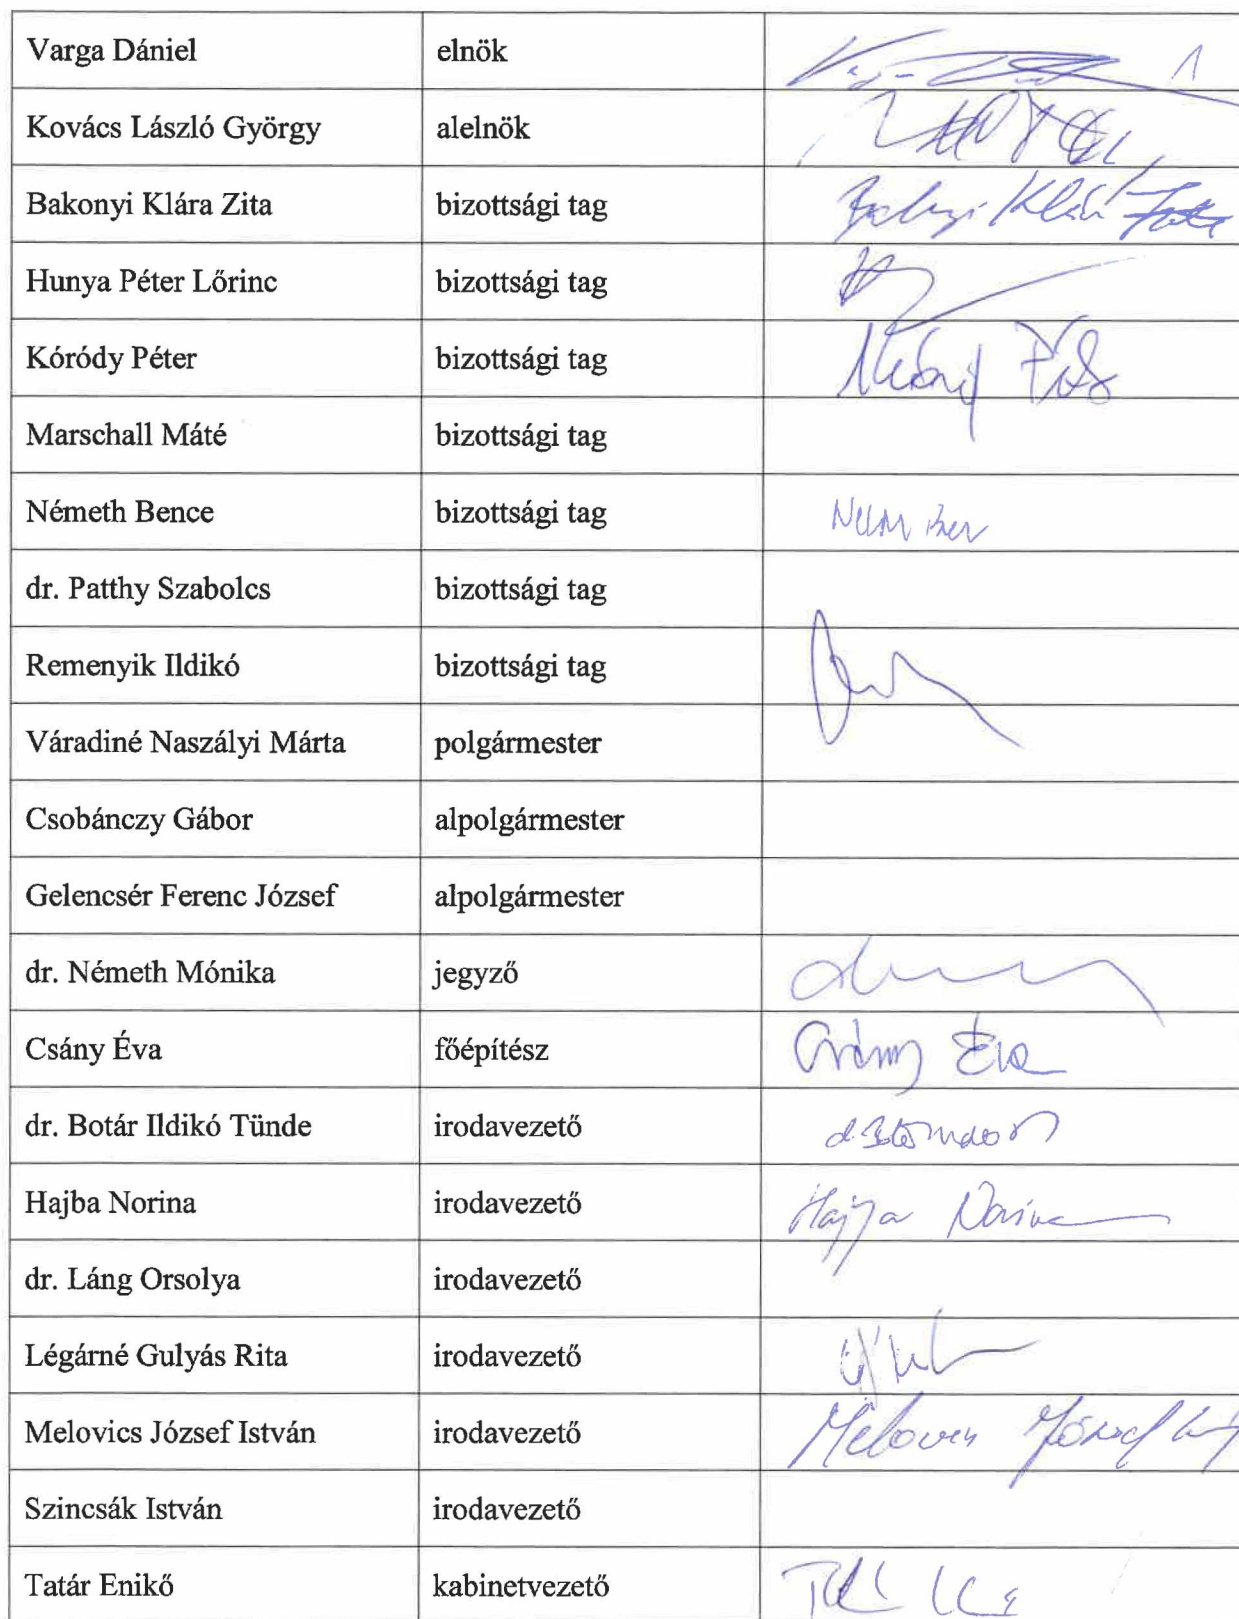 Varga Dániel elnök
Kovács László György alelnök
Bakonyi Klára Zita bizottsági tag
Hunya Péter Lőrinc bizottsági tag
Kóródy Péter bizottsági tag
Marschall Máté bizottsági tag
Németh Bence bizottsági tag
dr. Patthy Szabolcs bizottsági tag
Remenyik Ildikó bizottsági tag
Váradiné Naszályi Márta polgármester
Csobánczy Gábor alpolgármester
Gelencsér Ferenc József alpolgármester
dr. Németh Mónika jegyző
Csány Éva főépítész Csány Éva
dr. Botár Ildikó Tünde irodavezető
Hajba Norina irodavezető Hajba Norina
dr. Láng Orsolya irodavezető
Légárné Gulyás Rita irodavezető
Melovics József István irodavezető Melovics József
Szincsák István irodavezető
Tatár Enikő kabinetvezető